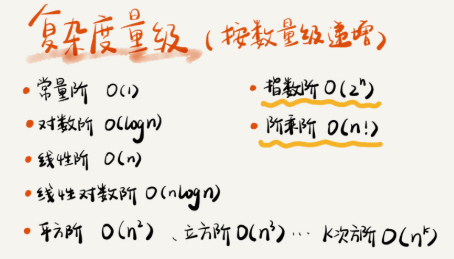 复杂度量级（按数量级递增）
• 常量阶 O(1)
• 对数阶 O(logn)
• 线性阶 O(n)
• 线性对数阶 O(nlogn)
• 平方阶 O(n²) 、立方阶 O(n³) ··· K次方阶 O(nᵏ)
• 指数阶 O(2ⁿ)
• 阶乘阶 O(n!)